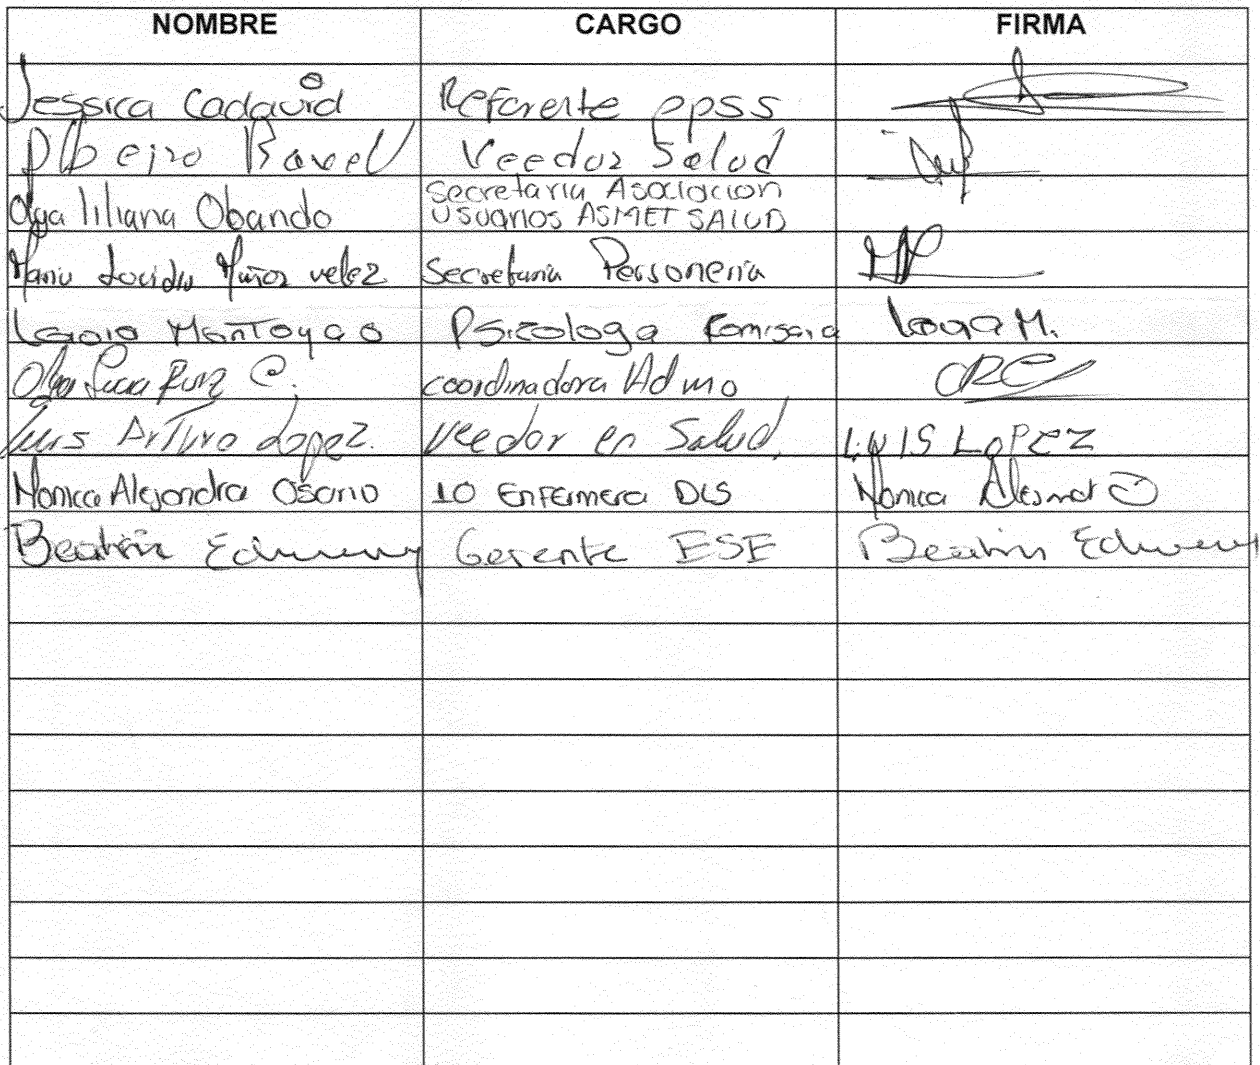 NOMBRE CARGO FIRMA
Jessica Cadavid Referente epss
Veedor Salud
Olga liliana Obando Secretaria Asociacion
Usuarios ASMET SALUD
Muñoz velez Secretaria Personeria
Montoya Psicologa Comisaria M.
Olga Lucia Ruiz C. coordinadora Admo
Luis Arturo Lopez. Veedor en Salud. LUIS LoPEZ
Monica Alejandra Osorio 10 Enfermera DLS Monica
Beatriz Gerente ESE Beatriz